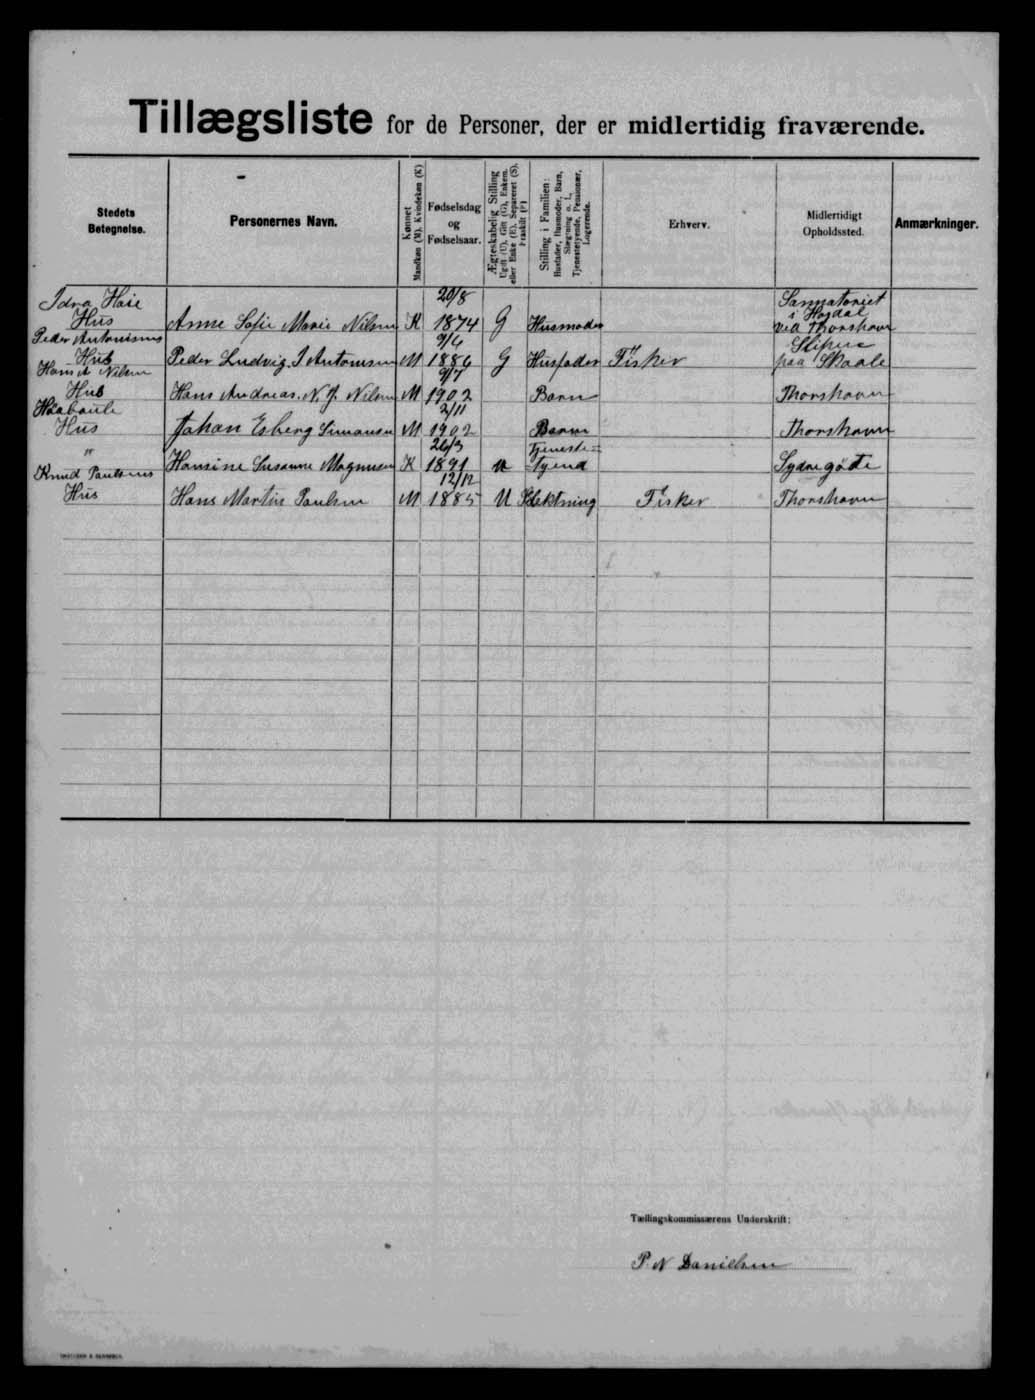 Tillægsliste for de Personer, der er midlertidig fraværende.
Stedets Betegnelse.
Personernes Navn.
Kønnet Mandkøn (M), Kvindekøn (K)
Fødselsdag og Fødselsaar.
Ægteskabelig Stilling Ugift (U), Gift (G), Enkem. eller Enke (E), Separeret (S), Fraskilt (F)
Stilling i Familien: Husfader, Husmoder, Barn, Slægtning o. l., Tjenestetyende, Pensionær, Logerende.
Erhverv.
Midlertidigt Opholdssted.
Anmærkninger.
Hus Anne Sofie Marie Nilsen K 20/8 1874 G Husmoder Sannatoriet i Hojdal ved Thorshavn
Peder Antonisens Hus Peder Ludvig. J Antonisen M 9/4 G Husfader Fisker paa Skaale
Hans A Nilsen Hus Hans Andreas. N. J. Nilsen M 9/7 1902 Barn Thorshavn
Hus Johan Esberg Simonsen M 2/11 1902 Barn Thorshavn
" Hansine Susanne Magnusen K 26/3 1891 u Tjeneste= tyend Sydregöte
Knud Paulsens Hus Hans Martin Paulsen M 12/12 1885 U Slektning Fisker Thorshavn
Tællingskommissærens Underskrift:
P. N Danielsen